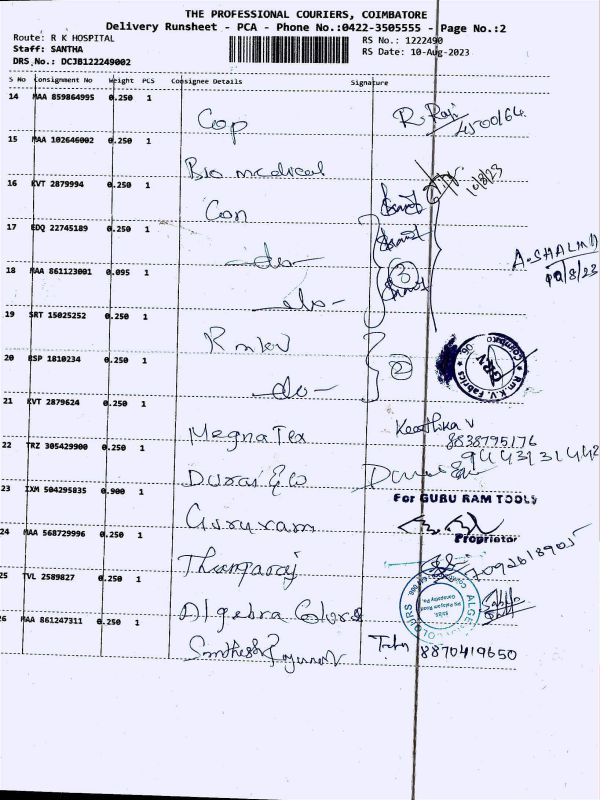 THE PROFESSIONAL COURIERS, COIMBATORE
Delivery Runsheet - PCA - Phone No.:0422-3505555 - Page No.:2
Route: R K HOSPITAL
RS No.: 1222490
Staff: SANTHA
RS Date: 10-Aug-2023
DRS No.: DCJB122249002
S No Consignment No Weight PCS Consignee Details Signature
14 MAA 859864995 0.250 1
Cop R. Raji
15 MAA 102646002 0.250 1
Bio medical
10/8/23
16 KVT 2879994 0.250 1
Con
17 EDQ 22745189 0.250 1
-do-
A. SHALMI
10/8/23
18 MAA 861123001 0.095 1
-do-
3
19 SRT 15025252 0.250 1
20 BSP 1810234 0.250 1
-do-
2
R.m.K.V. Fabrics
GRV
21 KVT 2879624 0.250 1
Megna Tex Keerthika V
8838795176
22 TRZ 305429900 0.250 1
9443131442
23 IXM 504295835 0.900 1
For GUBU RAM TOOLS
Gururam
Proprietor
24 MAA 568729996 0.250 1
Thangaraj
7092618905
25 TVL 2589827 0.250 1
Algebra Colours
ALGEBRA COLOURS
26 MAA 861247311 0.250 1
8870419650